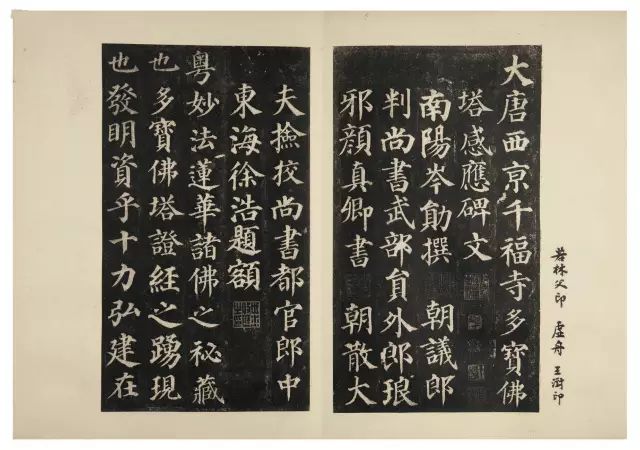 若林父印 虛舟 王澍印
大唐西京千福寺多寶佛
塔感應碑文
南陽岑勛撰 朝議郎
判尚書武部員外郎琅
邪顏真卿書 朝散大
夫撿挍尚書都官郎中
東海徐浩題額
粵妙法蓮華諸佛之秘藏
也多寶佛塔證經之踴現
也發明資乎十力弘建在